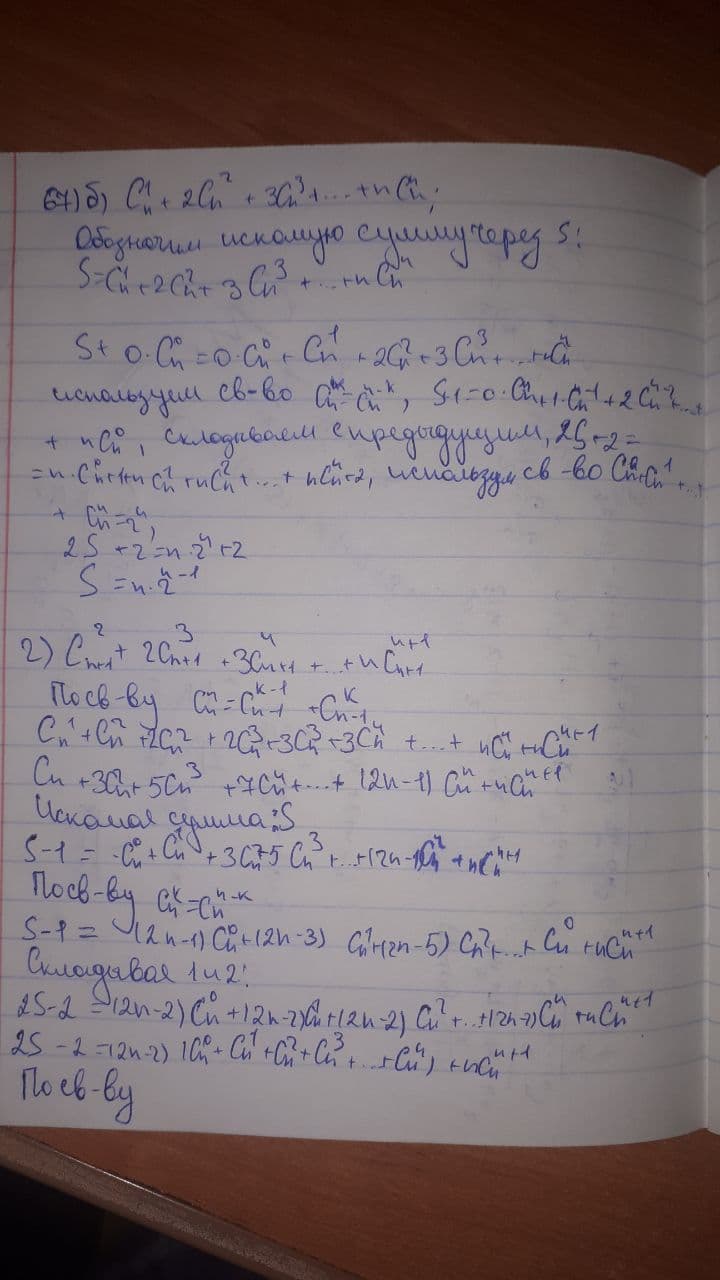 67) б) Cn^1 + 2Cn^2 + 3Cn^3 + ... + nCn^n;
Обозначим искомую сумму через S:
S = Cn^1 + 2Cn^2 + 3Cn^3 + ... + nCn^n
S + 0·Cn^0 = 0·Cn^0 + Cn^1 + 2Cn^2 + 3Cn^3 + ... + nCn^n
используем св-во Cn^k = Cn^n-k,
+ nCn^0, складываем с предыдущим, 2S+2=
= n·Cn^0 + nCn^1 + nCn^2 + ... + nCn^n+2, используем св-во Cn^0+Cn^1+...+
+ Cn^n = 2^n,
2S + 2 = n·2^n + 2
S = n·2^n-1
2) Cn+1^2 + 2Cn+1^3 + 3Cn+1^4 + ... + nCn+1^n+1
По св-ву = Cn-1^k-1 + Cn-1^k
Cn^1 + Cn^2 + 2Cn^2 + 2Cn^3 + 3Cn^3 + 3Cn^4 + ... + nCn^n + nCn^n+1
Cn + 3Cn^2 + 5Cn^3 + 7Cn^4 + ... + (2n-1) Cn^n + nCn^n+1
Искомая сумма: S
S-1 = -Cn^0 + Cn^1 + 3Cn^2 + 5Cn^3 + ... + (2n-1)Cn^n + nCn^n+1
По св-ву Cn^k = Cn^n-k
S-1 = (2n-1)Cn^0 + (2n-3) Cn^1 + (2n-5) Cn^2 + ... + Cn^0 + nCn^n+1
Складывая 1 и 2:
2S-2 = (2n-2)Cn^0 + (2n-2)Cn^1 + (2n-2) Cn^2 + ... + (2n-2)Cn^n + nCn^n+1
2S - 2 = (2n-2) (Cn^0 + Cn^1 + Cn^2 + Cn^3 + ... + Cn^n) + nCn^n+1
По св-ву